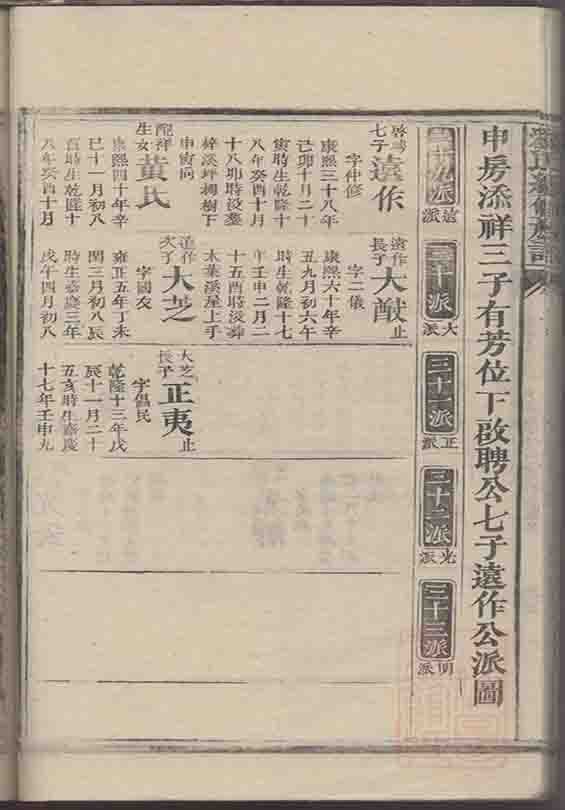 申房添祥三子有芳位下啟聘公七子遠作公派圖
十九派
遠派
三十派
大派
三十一派
正派
三十二派
光派
三十三派
明派
啟聘七子
遠作
字仲修
康熙三十八年
己卯十月二十
寅時生乾隆十
八年癸酉十月
十八卯時沒葬
梓溪坪楓樹下
申寅向
配祥生女
黃氏
康熙四十年辛
巳十一月初八
酉時生乾隆十
八年癸酉十月
遠作長子
大猷止
字二儀
康熙六十年辛
丑九月初六午
時生乾隆十七
年壬申二月二
十五酉時沒葬
木葉溪屋上手
遠作次子
大芝
字國友
雍正五年丁未
閏三月初八辰
時生嘉慶三年
戊午四月初八
大芝長子
正夷止
字倡民
乾隆十三年戊
辰十一月二十
五亥時生嘉慶
十七年壬申九